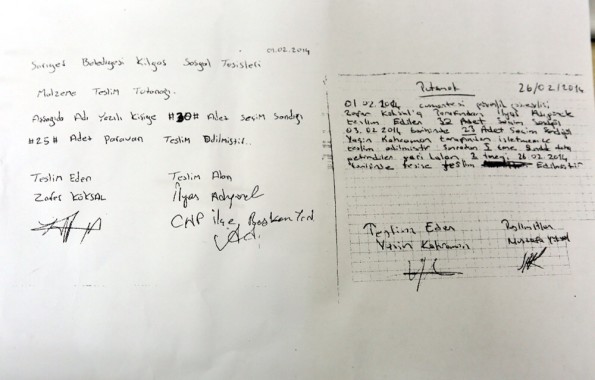 01.02.2014
Sarıyer Belediyesi Kilyos Sosyal Tesisleri
Malzeme Teslim Tutanağı.
Aşağıda Adı Yazılı Kişiye #30# Adet Seçim Sandığı
#25# Adet Paravan Teslim Edilmiştir.
Teslim Eden Teslim Alan
Zafer KÖKSAL İlyas
CHP İlçe Başkan Yrd
Tutanak 26/02/2014
01.02.2014 cumartesi günü
Zafer Köksal'ın Tarafından İlyas
teslim Edilen 32 Adet Seçim Sandığı
03.02.2014 tarihinde 23 Adet Seçim Sandığı
Yasin Kahraman tarafından
teslim edilmiştir Sonradan
geri kalan 2 26.02.2014
tarihinde tesise teslim Edilmiştir
Teslim Eden Teslim Alan
Yasin Kahraman Mustafa